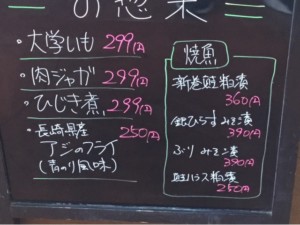 お惣菜
・大学いも 299円
・肉ジャガ 299円
・ひじき煮 299円
・長崎県産 250円
アジのフライ
(青のり風味)
焼魚
新巻鮭粕漬
360円
銀ひらすみそ漬
390円
ぶりみそ漬
390円
鮭ハラス粕漬
250円